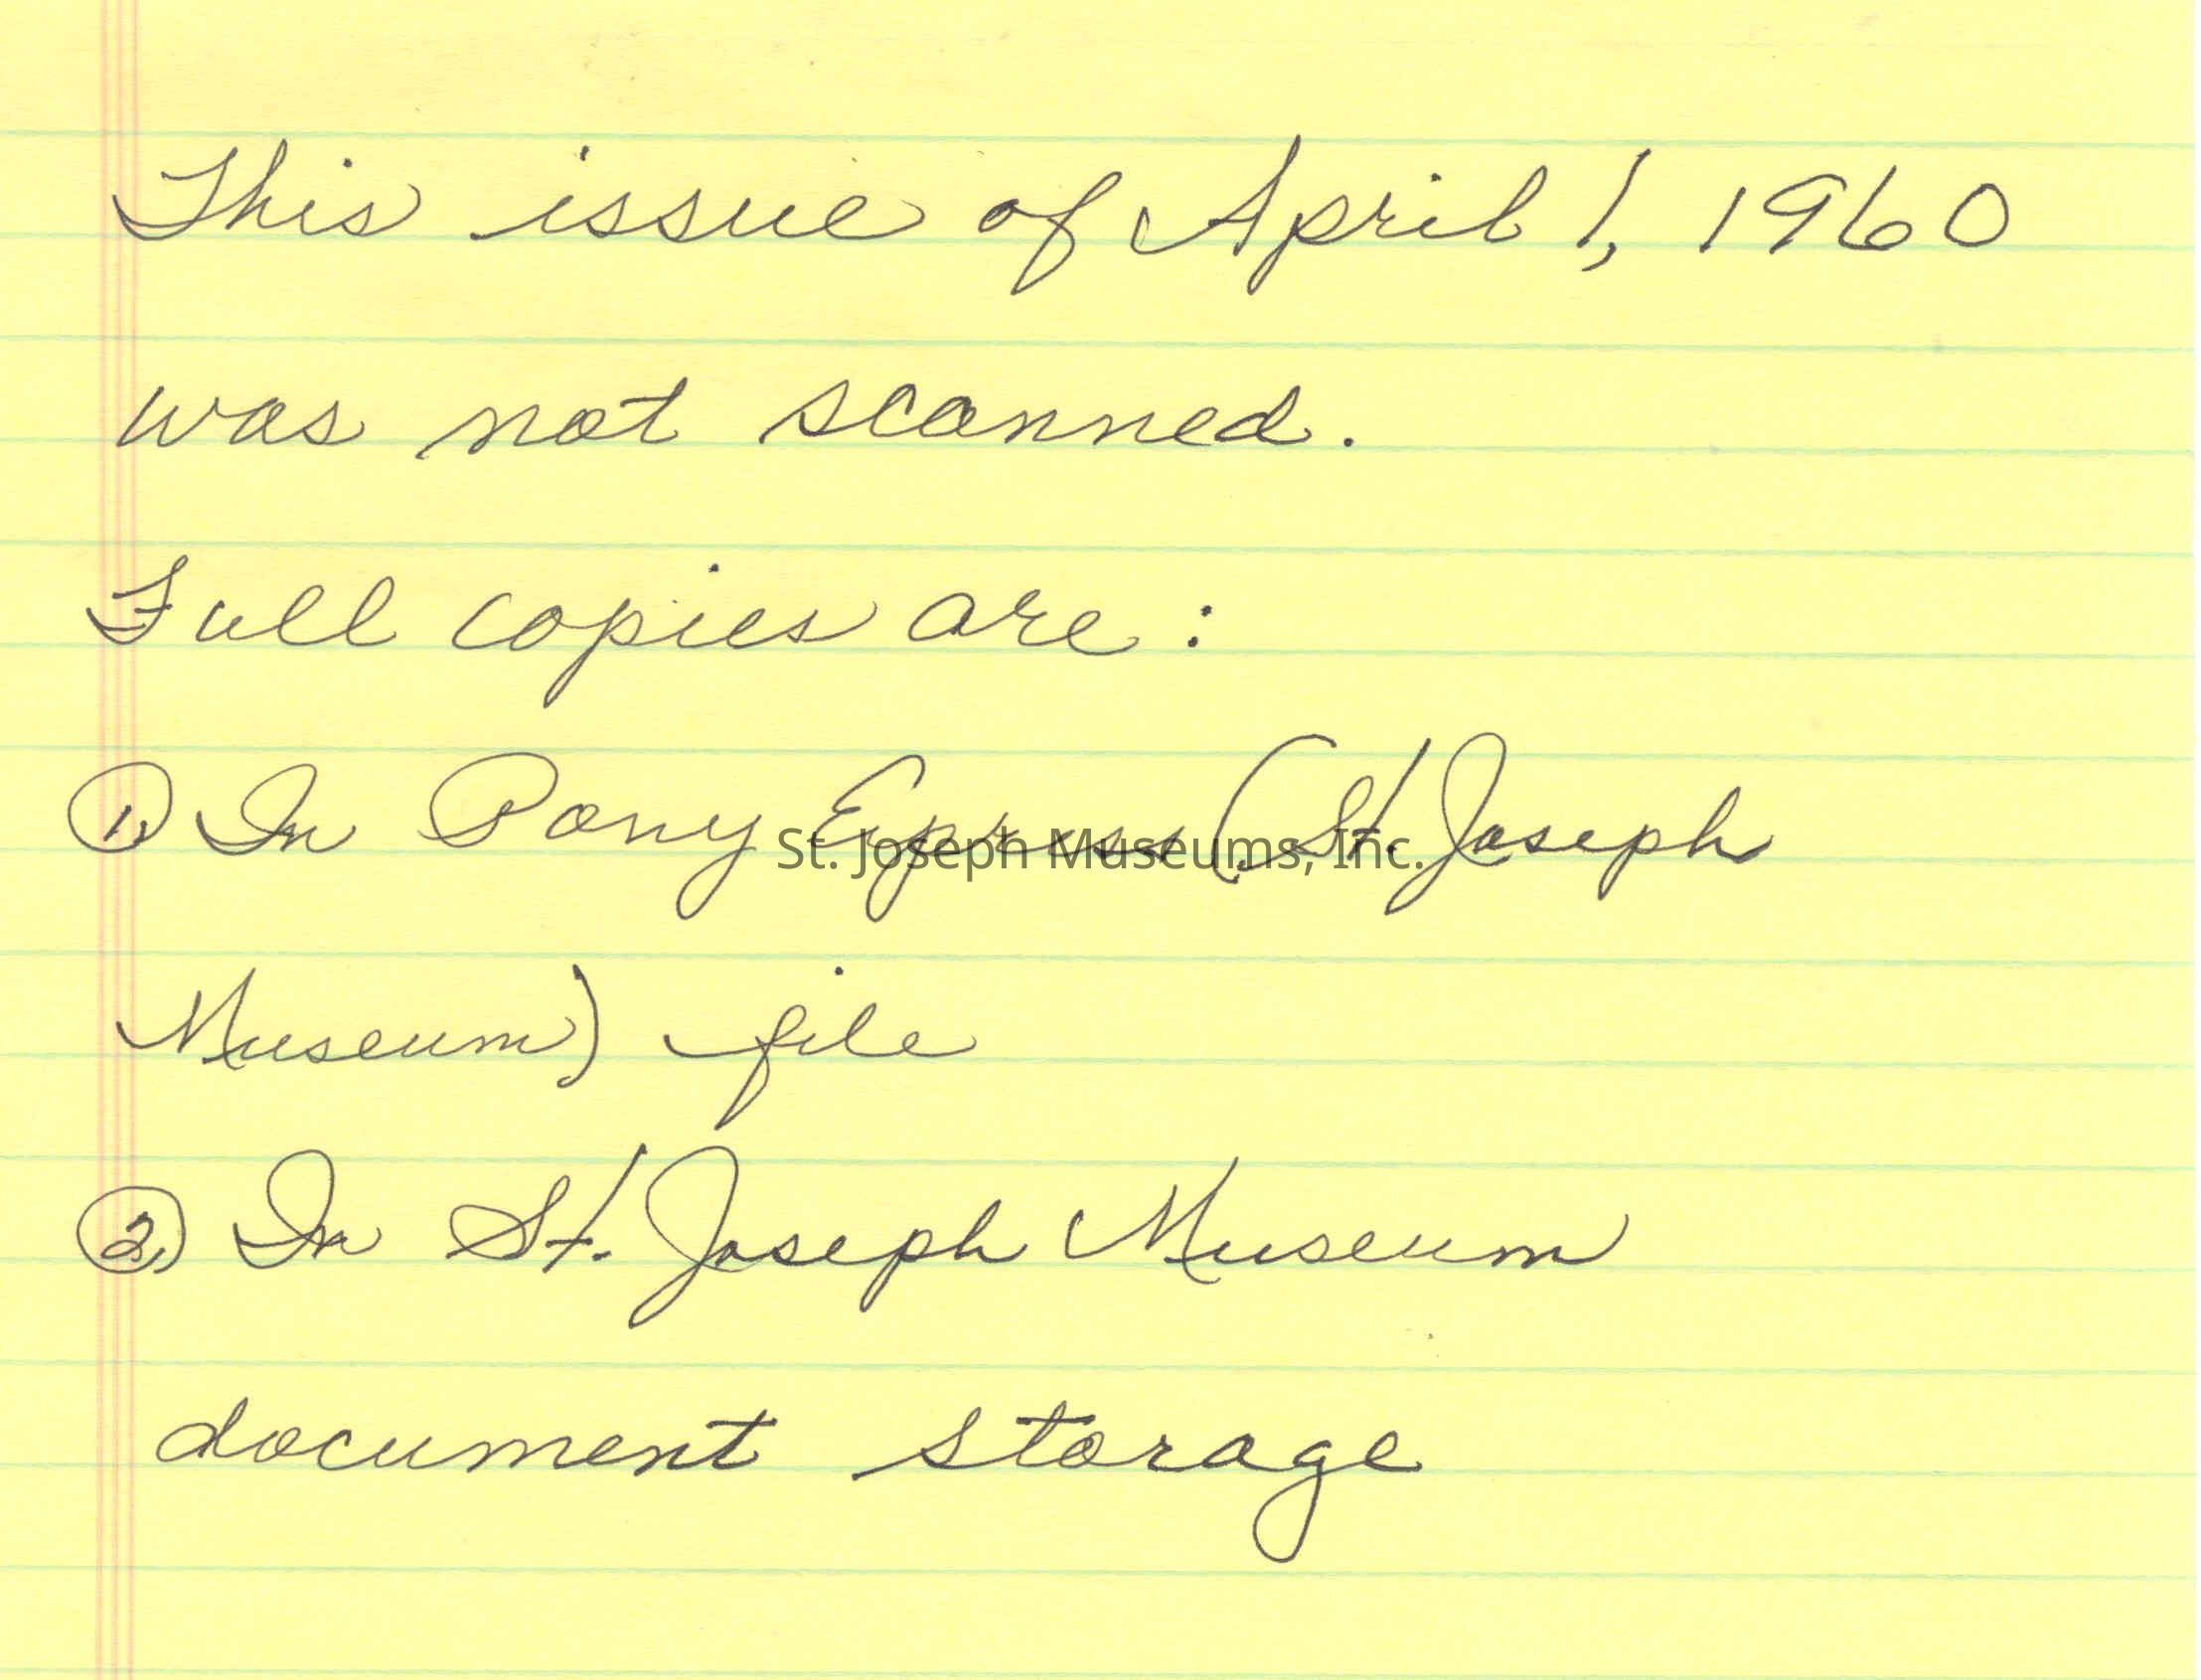 This issue of April 1, 1960
was not scanned.
Full copies are:
1. In Pony Express (St. Joseph
St. Joseph Museums, Inc.
Museum) file
2. In St. Joseph Museum
document storage